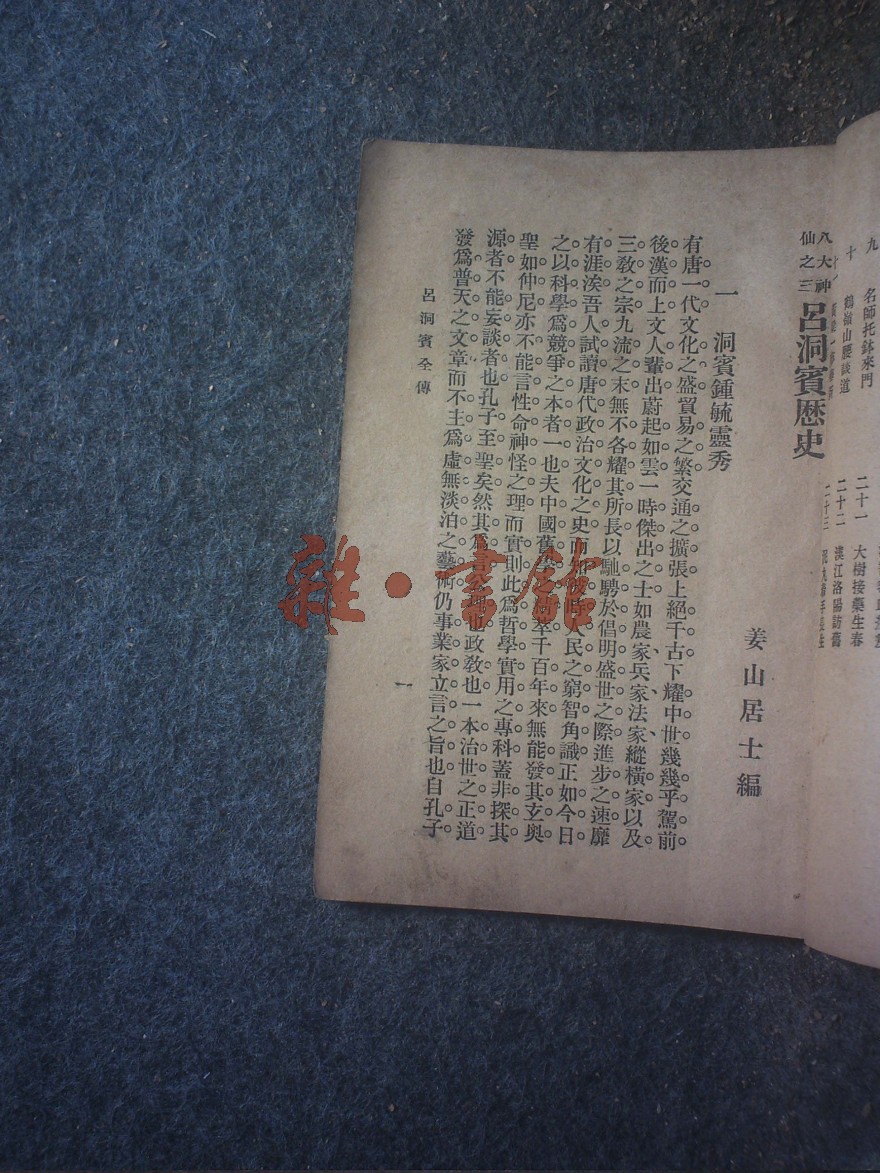 九 名師托鉢來門
十 鶴嶺山腰談道
二十一 大樹接藥生春
二十二 漢江洛陽訪舊
二十三
八大神仙之三 呂洞賓歷史
姜山居士編
一 洞賓鍾毓靈秀
有唐一代文化之盛貿易之繁交通之擴張上絕千古下耀中世幾幾乎駕前
後漢而上文人輩出蔚起如雲一時傑出之士如農家、兵家、法家、縱橫家以及
三教之宗九流之末無不各耀其所長以馳騁於倡明盛世之際進步之速靡
有涯涘吾人試讀唐代政治文化之史而知彼時人民之窮智角識正如今日
之以科學爲競爭之本者一也夫中國舊學荟萃千百年來無能發其玄奧
聖如仲尼亦不能言性命神怪之理而實則此爲哲學實用之專科蓋非探其
源者不能妄談者也孔子至聖矣然其爲言公理也政教也一本治世之正道
發爲普天之文章而不主爲虛無淡泊之藝術仍事業家立言之旨也自孔子
呂洞賓全傳
一
雜·書館